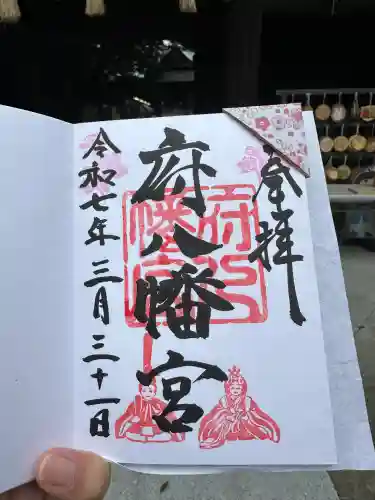 奉拝
府八幡宮
府八
幡宮
令和七年三月三十一日